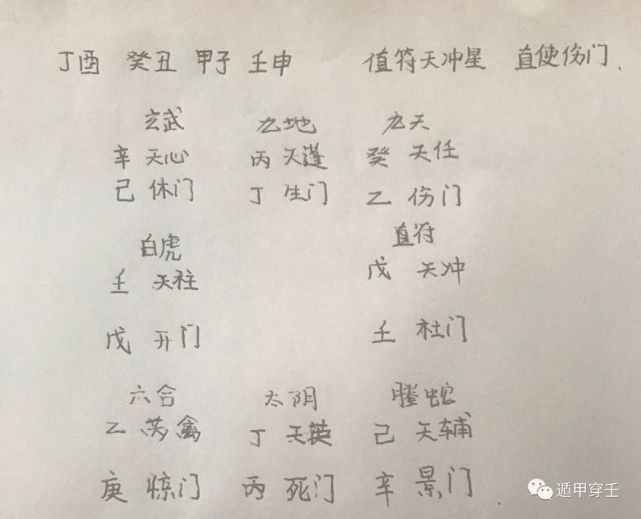 丁酉 癸丑 甲子 壬申 值符天冲星 直使伤门
玄武 九地 九天
辛 天心 丙 天蓬 癸 天任
己 休门 丁 生门 乙 伤门
白虎 直符
壬 天柱 戊 天冲
戊 开门 壬 杜门
六合 太阴 螣蛇
乙 芮禽 丁 天英 己 天辅
庚 惊门 丙 死门 辛 景门
遁甲穿壬